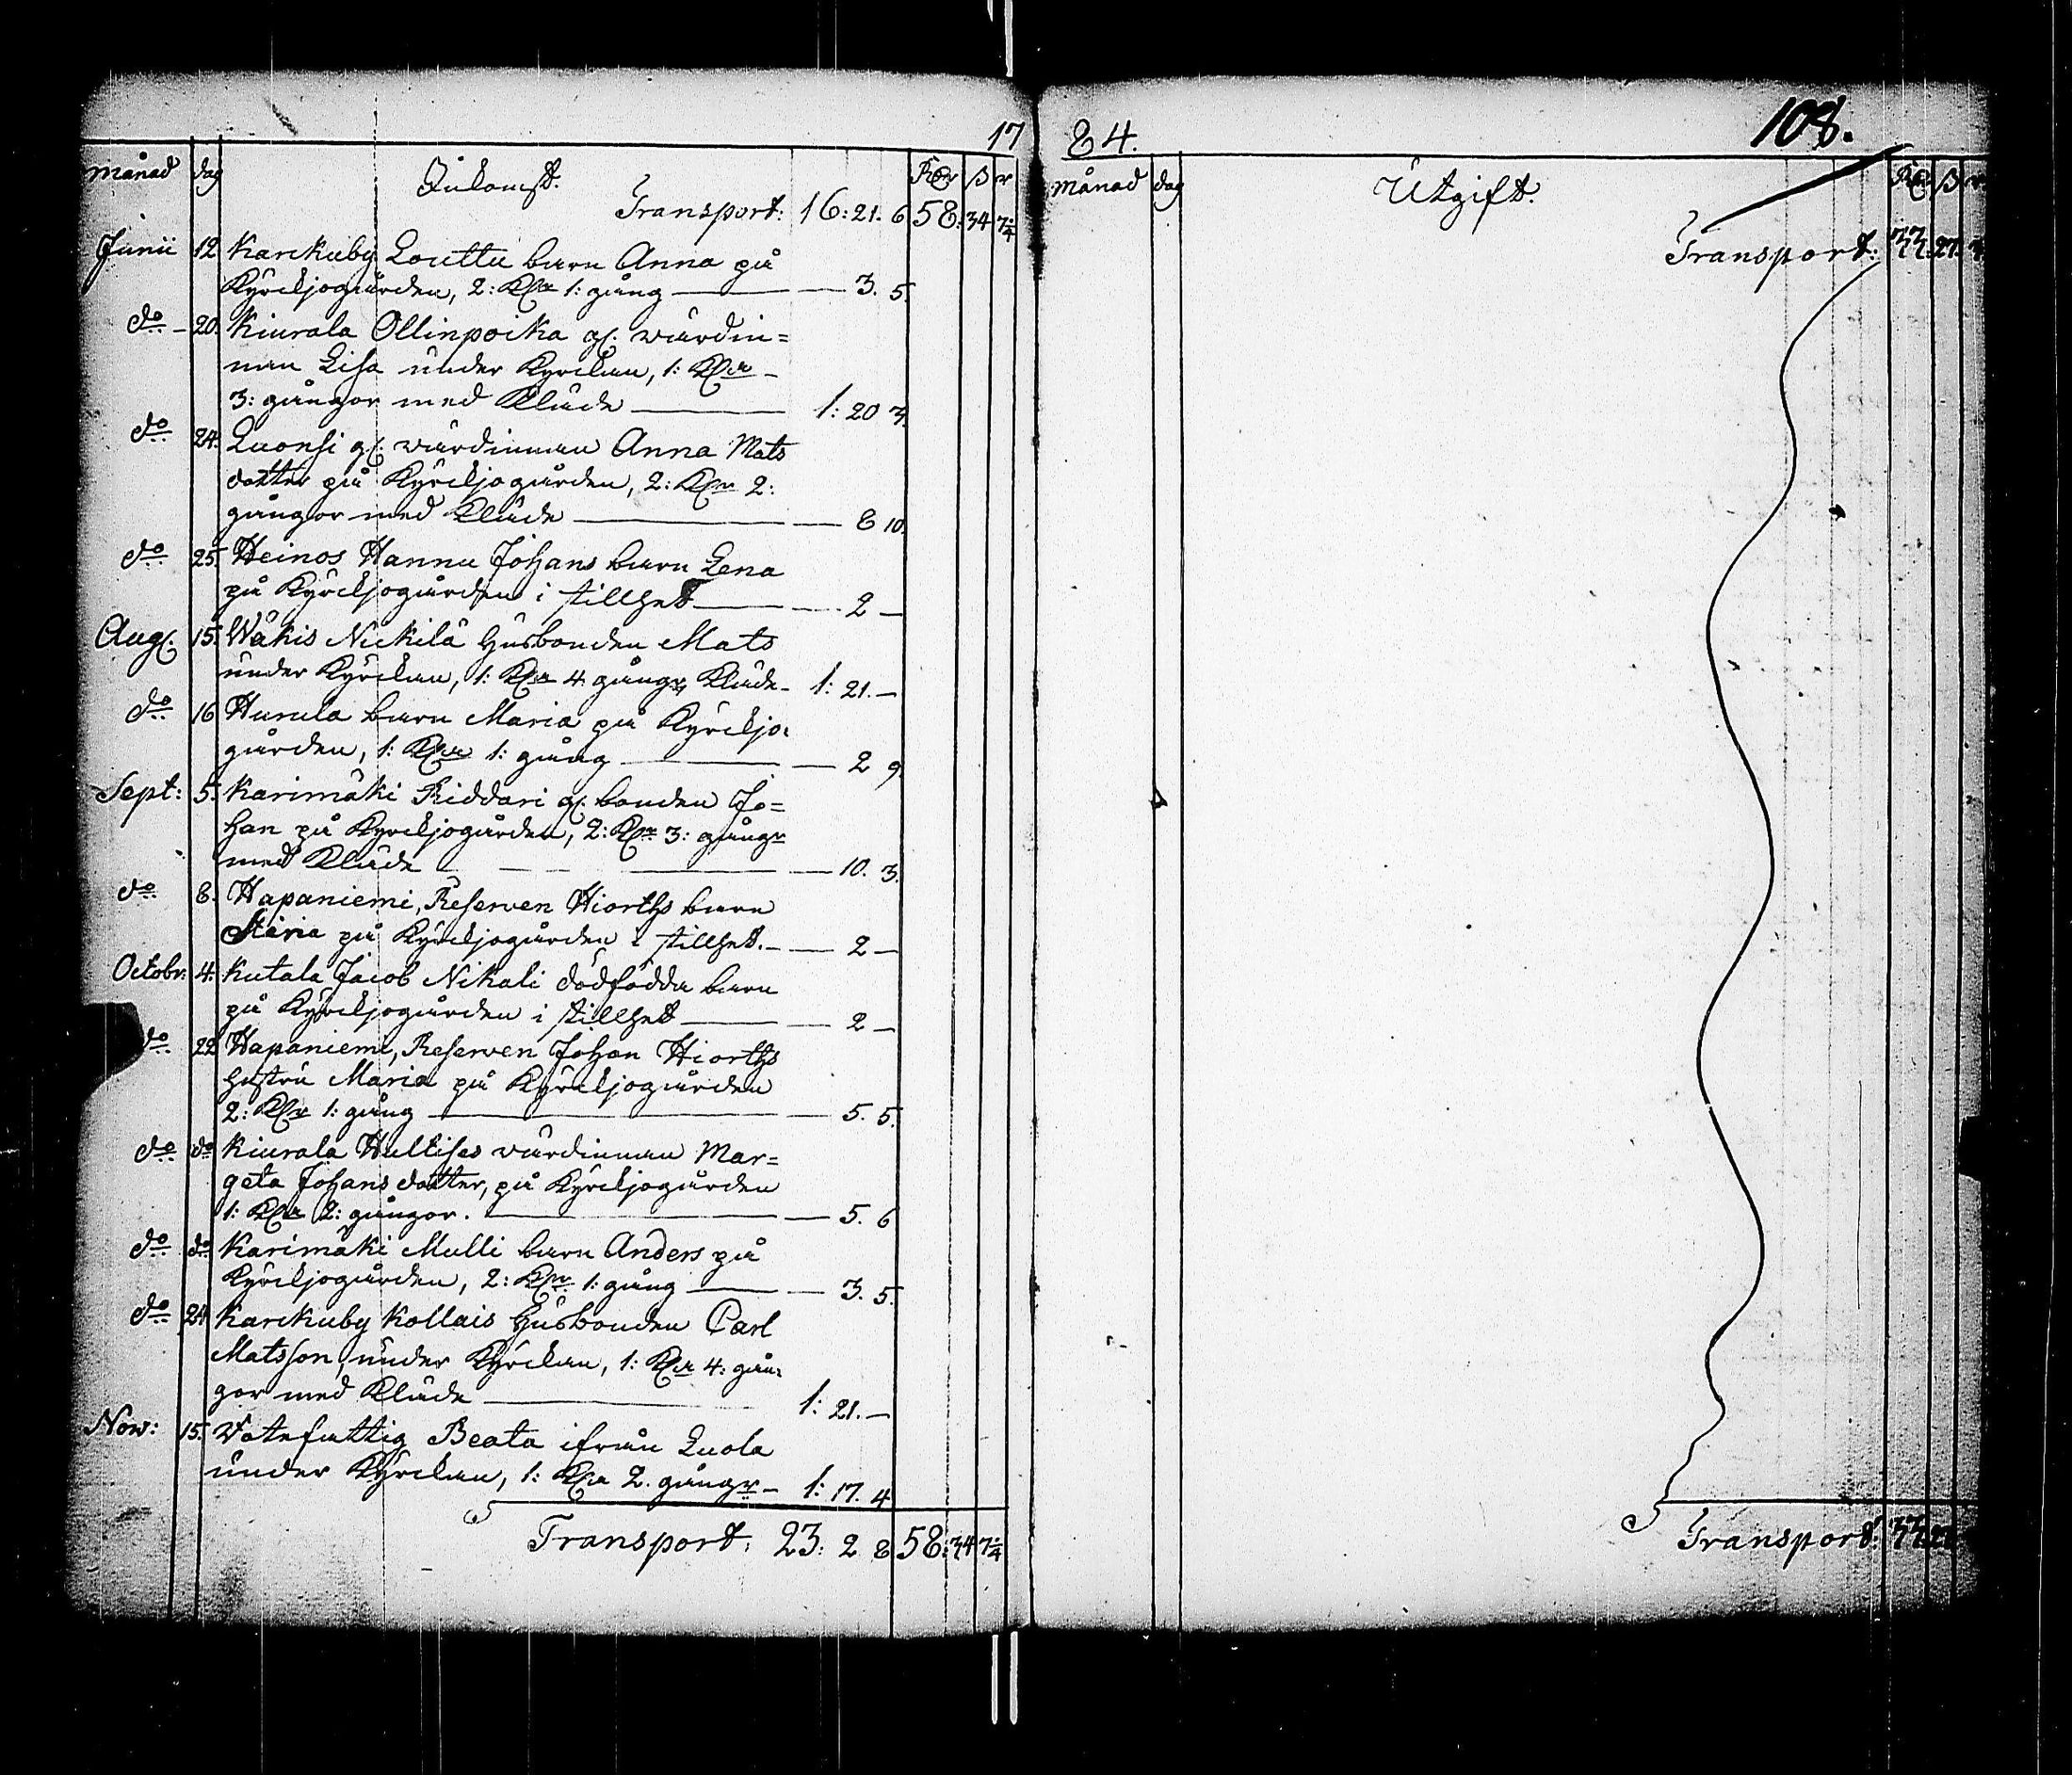 17
månad dag Inkomst. Rdr ß r
Transport: 16: 21. 6 58: 34 7¼
Junii 12 Karckuby Louttu barn Anna på
Kyrckjogården, 2: Klr 1: gång — 3. 5.
do 20. Kiurala Ollinpoika gl. wärdin=
nan Lisa under Kyrckan, 1: Kla
3: gångor med Kläde — 1: 20 3.
do 24. Luonsi gl. wärdinnan Anna Mats
dotter på Kyrckjogården, 2: Klr 2:
gångor med Kläde — 8 10.
do 25. Heinos Hannu Johans barn Lena
på Kyrckjogården i stillhet — 2 —
Aug. 15. Wäkis Nickilä Husbonden Mats
under Kyrckan, 1: Kla 4 gångr Kläde — 1: 21. —
do 16 Hurula barn Maria på Kyrckjo-
gården, 1: Kla 1: gång — 2 9.
Sept: 5. Karimäki Riddari gl. bonden Jo=
han på Kyrckjogården, 2: Klr 3: gångr
med Kläde — 10. 3.
do 8. Hapaniemi, Reserven Hiorths barn
Maria på Kyrckjogården i stillhet. — 2 —
Octobr: 4. Kutala Jacob Nikali dödfödda barn
på Kyrckjogården i stillhet — 2 —
do 22 Hapaniemi, Reserven Johan Hiorths
hustru Maria på Kyrckjogården
2: Klr 1: gång — 5. 5.
do do Kiurala Hultises wärdinnan Mar=
geta Johans dotter, på Kyrckjogården
1: Kla 2: gångor. — 5. 6
do do Karimäki Mulli barn Anders på
Kyrckjogården, 2: Klr 1: gång — 3. 5.
do 24 Karckuby Kollais Husbonden Carl
Matsson, under Kyrckan, 1: Kla 4: gån-
gor med Kläde — 1: 21. —
Now: 15. Rotefattig Beata ifrån Luola
under Kyrckan, 1: Kla 2. gångr — 1: 17. 4
Transport: 23: 2 8 58: 34 7¼
84. 108.
månad dag Utgift. Rdr ß r
Transport: 33. 27.
Transport: 33. 27